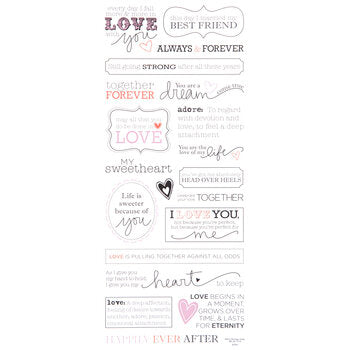 every day I fall
more & more in
LOVE with
you
this day I married my
BEST FRIEND
ALWAYS & FOREVER
still going STRONG after all these years
together
FOREVER
You are a
dream
come true
may all that you
do be done in
LOVE
adore: To regard
with devotion and
love; to feel a deep
attachment.
You are the
love of my life
MY
sweetheart
HEAD OVER HEELS
Life is
sweeter
because of
you
TOGETHER
I LOVE YOU,
not because you're perfect,
but because you're perfect for
me
LOVE IS PULLING TOGETHER AGAINST ALL ODDS
As I give you
my hand to hold,
I give you my
heart
to keep
love: a deep affection,
LOVE BEGINS IN
A MOMENT,
GROWS OVER
TIME, & LASTS
FOR ETERNITY
HAPPILY EVER AFTER